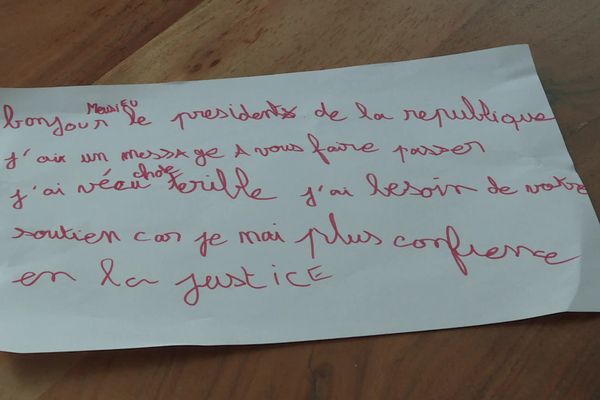 bonjour Mesieu le president de la republique
j'aix un message A vous faire passer
j'ai vécu chose terible j'ai besoin de votre
soutien car je mai plus confience
en la justice